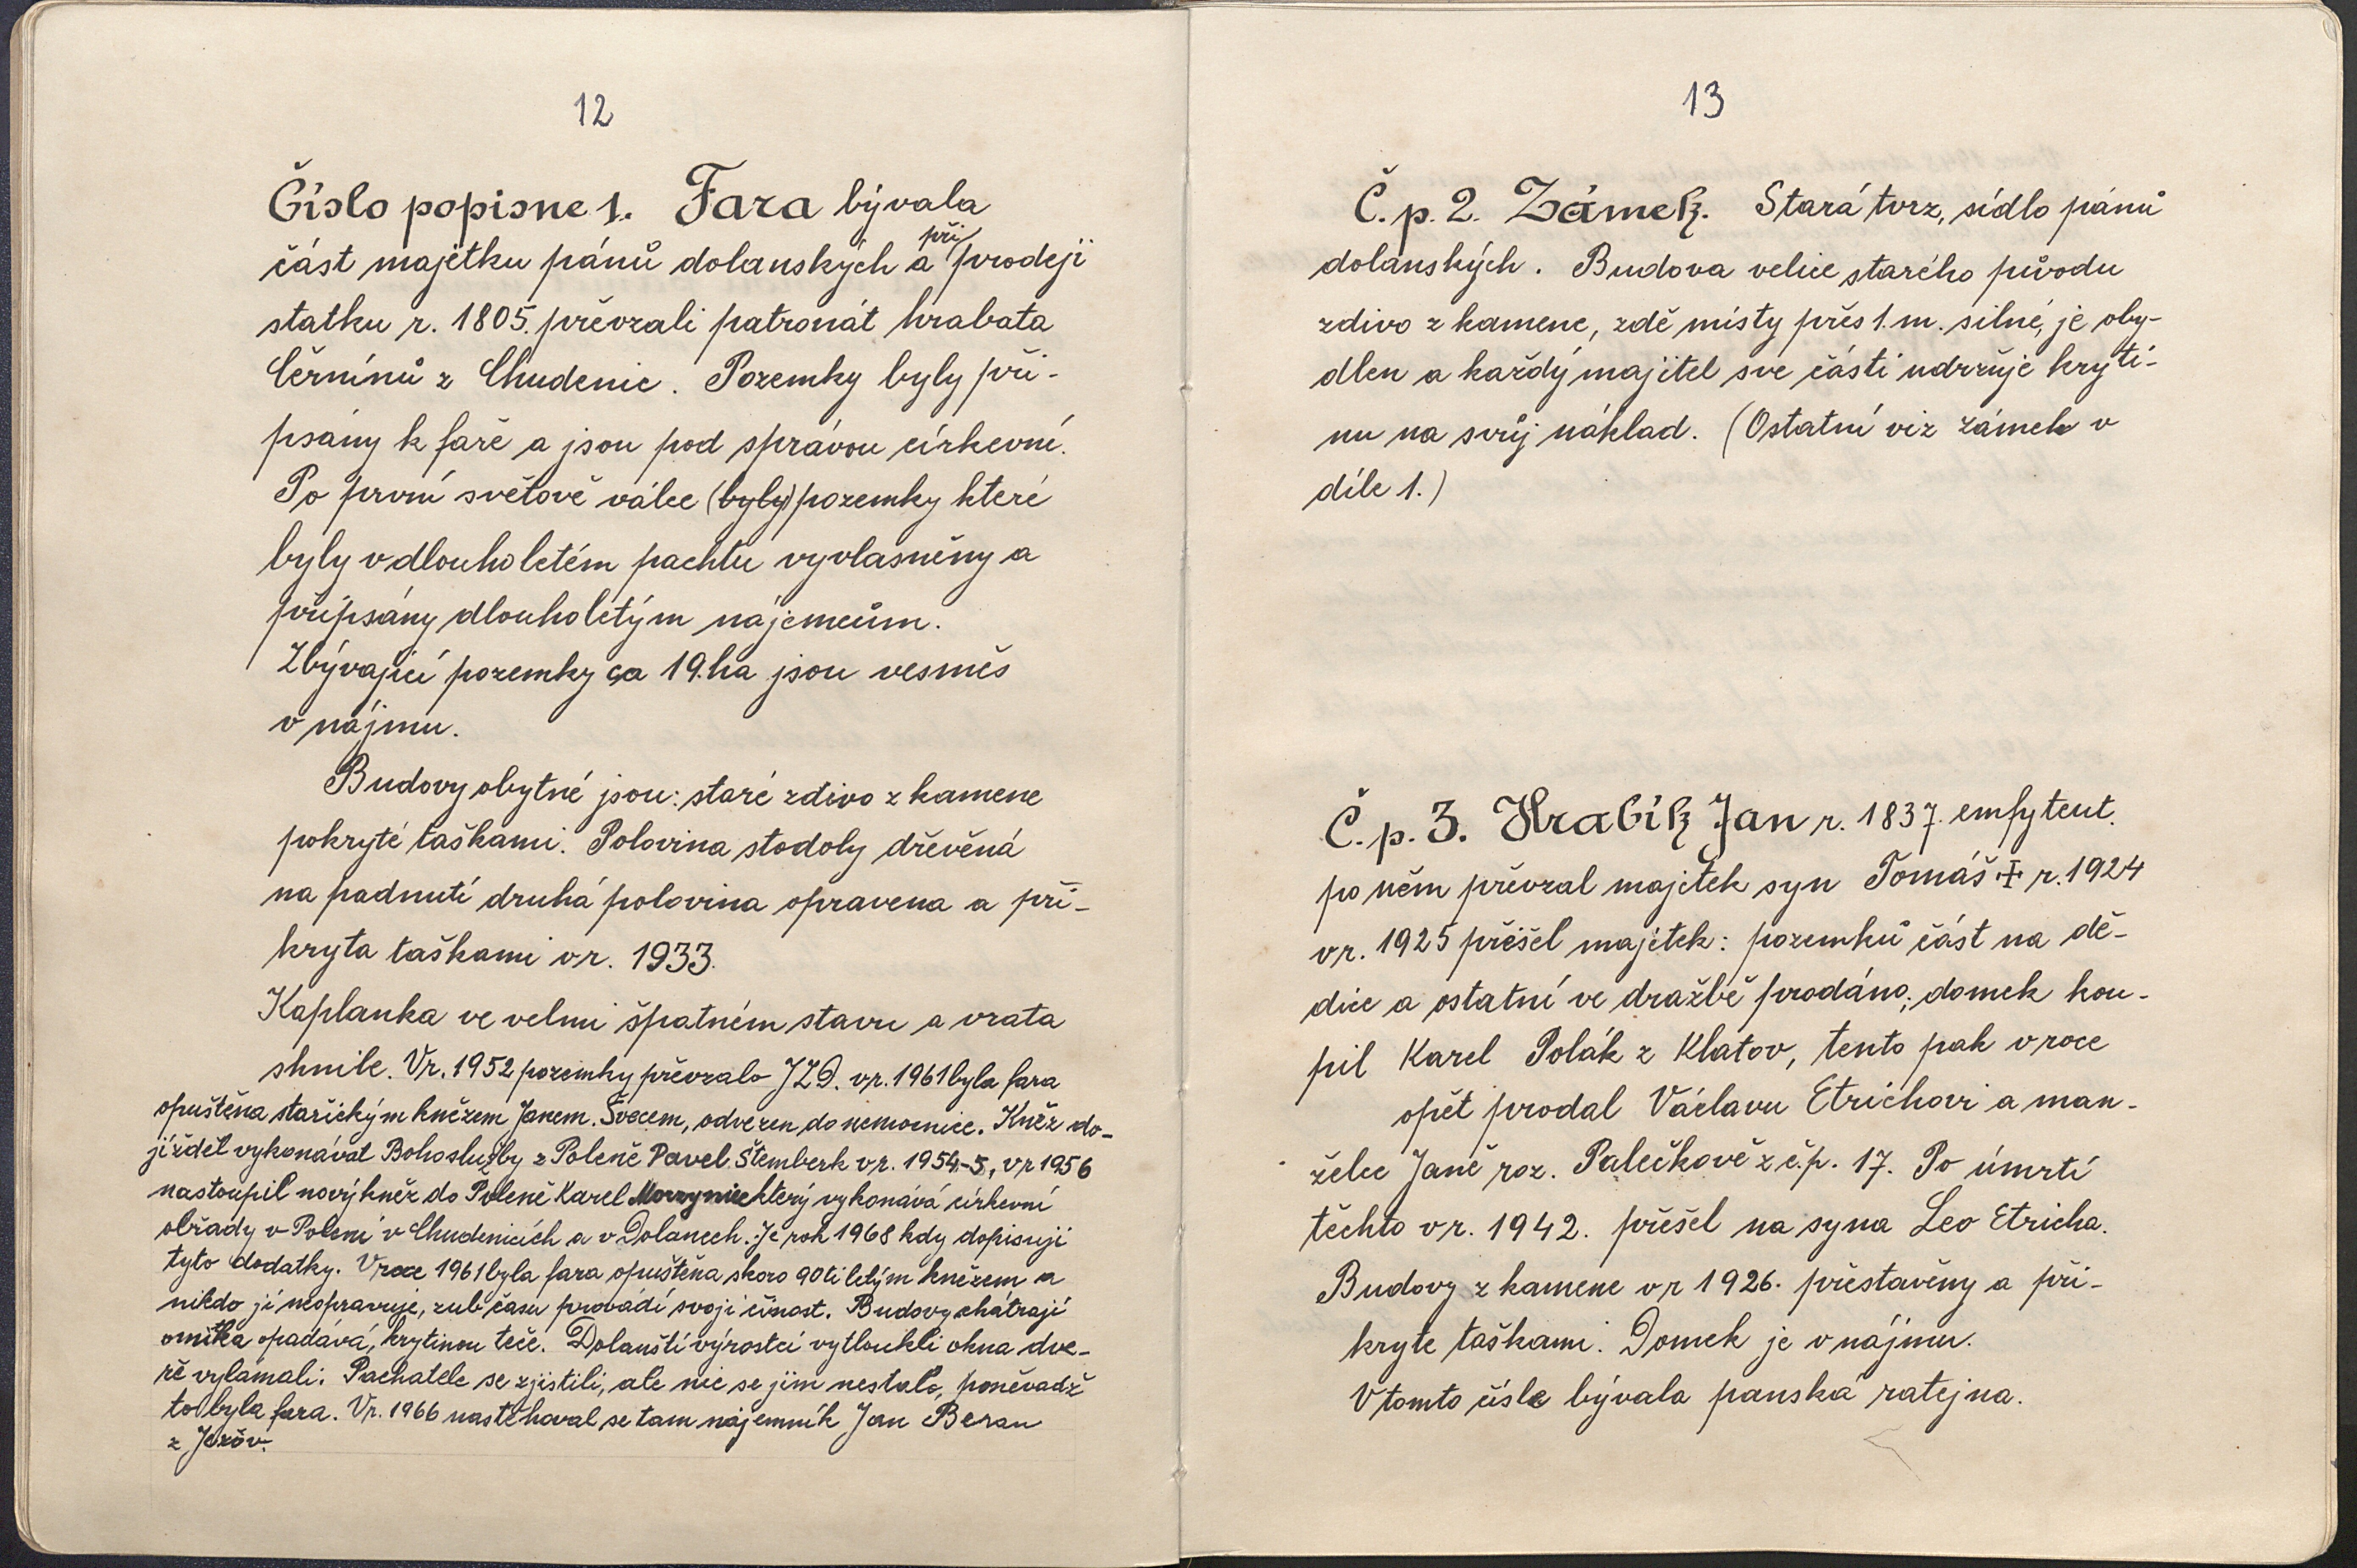 12
Číslo popisne 1. Fara bývala
část majetku pánů dolanských a při prodeji
statku r. 1805. převzali patronát hrabata
Černínů z Chudenic. Pozemky byly při-
psány k faře a jsou pod správou církevní.
Po první světově válce (byly) pozemky které
byly v dlouholetém pachtu vyvlasněny a
připsány dlouholetým nájemcům.
Zbývající pozemky ca 19.ha jsou vesměs
v nájmu.
Budovy obytné jsou: staré zdivo z kamene
pokryté taškami. Polovina stodoly dřevěná
na padnutí druhá polovina opravena a při-
kryta taškami v r. 1933.
Kaplanka ve velmi špatném stavu a vrata
shnile. Vr. 1952 pozemky převzalo JZD. vr. 1961 byla fara
opuštěna staříckým knězem Janem. Švecem, odvezen do nemocnice. Kněz do-
jížděl vykonávat Bohoslužby z Poleně Pavel Štemberk vr. 1954-5, vr 1956
nastoupil nový kněz do Poleně Karel který vykonává církevní
obřady v Poleni v Chudenicích a v Dolanech. Je rok 1968 kdy dopisuji
tyto dodatky. V roce 1961 byla fara opuštěna skoro 90ti letým knězem a
nikdo jí neopravuje, zub času provádí svoji činost. Budovy chátrají
omítka opadává, krytinou teče. Dolanští výrostci vytloukli okna dve-
ře vylámali. Pachatele se zjistili, ale nic se jim nestalo, poněvadž
to byla fara. Vr. 1966 nastěhoval se tam nájemník Jan Beran
z Jezův.
13
Č. p. 2. Zámek. Stará tvrz, sídlo pánů
dolanských. Budova velice starého původu
zdivo z kamene, zdě místy přes 1. m. silné, je oby-
dlen a každý majitel sve části udrržuje kryti-
nu na svůj náklad. (Ostatní viz zámek v
díle 1.)
Č. p. 3. Hrabík Jan r. 1837. emfyteut.
po něm převzal majetek syn Tomáš ✝ r. 1924
vr. 1925 přešel majetek: pozemků část na dě-
dice a ostatní ve dražbě prodáno; domek kou-
pil Karel Polák z Klatov, tento pak v roce
opět prodal Václavu Etrichovi a man-
želce Janě roz. Palečkově z č.p. 17. Po úmrtí
těchto v r. 1942. přešel na syna Leo Etricha.
Budovy z kamene v r 1926. přestavěny a při-
kryte taškami. Domek je v nájmu.
V tomto čísle bývala panská ratejna.